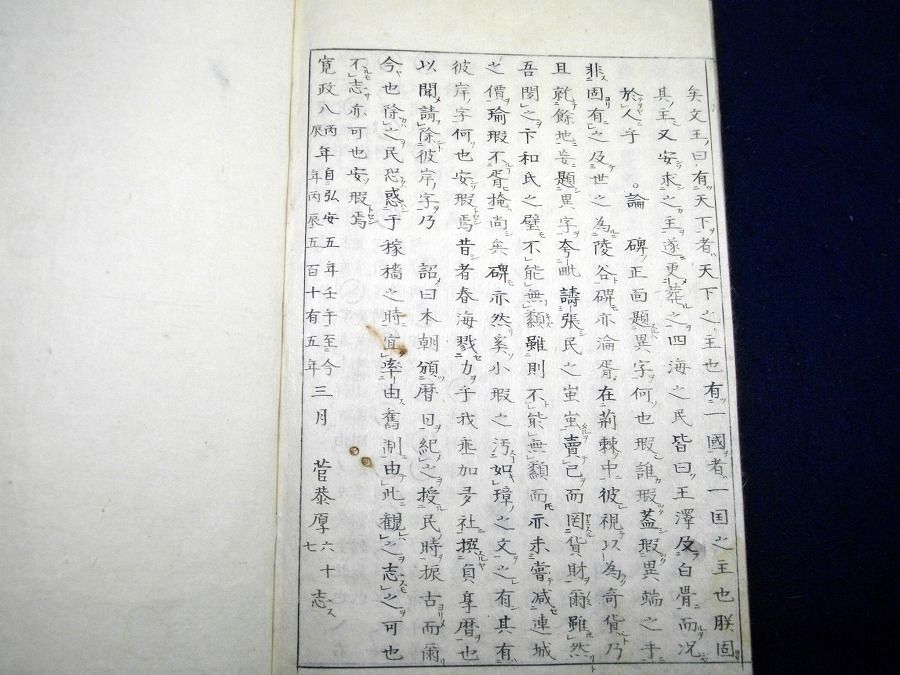 矣文王曰有天下者天下之主也有一國者一国之主也朕固
其主又安求之主遂更葬之四海之民皆曰王澤及白骨而况
於人乎 。論 碑正面題異字何也瑕誰瑕蓋瑕異端之手
非固有之及世之為陵谷碑亦淪胥在荊棘中彼視以為奇貨乃
且就餘地妄題異字夸毗譸張民之蚩蚩賣己而罔貨財爾雖然
吾聞之卞和氏之璧不能無纇雖則不能無纇而亦未嘗减連城
之價瑜瑕不胥掩尚矣碑亦然奚小瑕之汚如璋之文之有其有
彼岸字何也安瑕焉昔者春海戮力乎我垂加夛社撰貟享暦也
以聞請除彼岸字乃 詔曰本朝頒暦日紀之授民時振古而爾
今也除之民恐惑于稼穡之時宜率由舊制由此観之志之可也
不志亦可也安瑕焉
寛政八丙辰年自弘安五年壬午至今年丙辰五百十有五年三月 菅恭厚六十七志